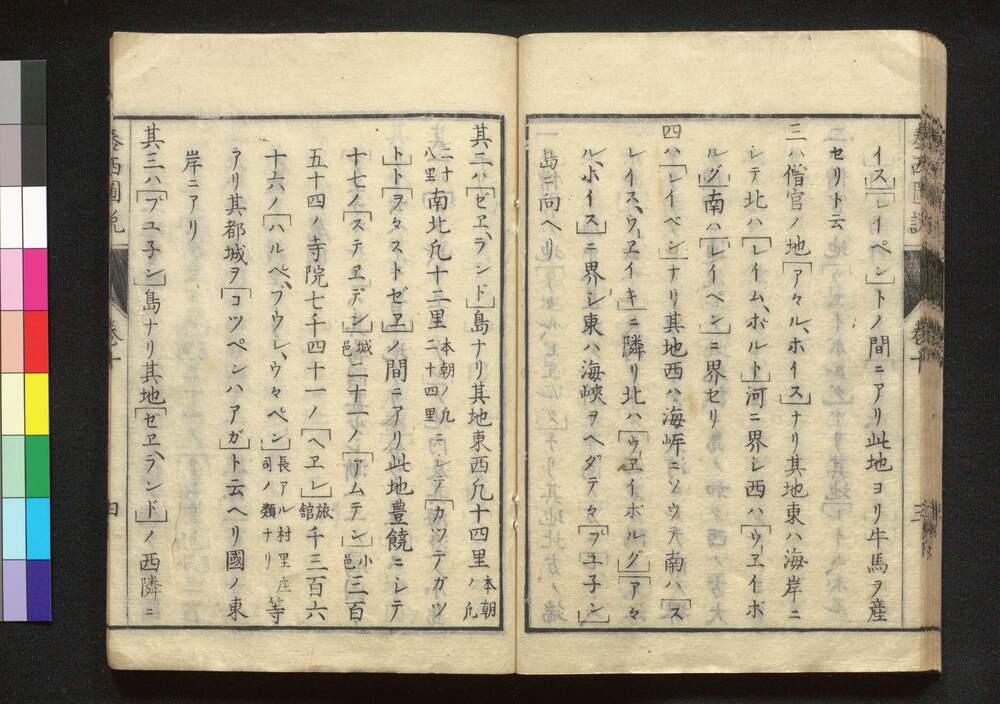 泰西圖説
卷十
三
イス[レイペン]トノ間ニアリ此地ヨリ牛馬ヲ産
セリト云
三ハ僧官ノ地[アヽル、ホイス]ナリ其地東ハ海岸ニ
シテ北ハ[レイム、ボルト]河ニ界シ西ハ[ウヱイボ
ルグ]南ハ[レイペン]ニ界セリ
四ハ[レイペン]ナリ其地西ハ海岸ニソウテ南ハ[ス
レイス、ウヱイキ]ニ隣リ北ハ[ウヱイボルグ][アヽ
ル、ホイス]ニ界シ東ハ海峡ヲヘダテヽ[フユ子ン]
島ニ向ヘリ
其二ハ[ゼヱ、ランド]島ナリ其地東西凢十四里本朝ノ凢
二十八里南北凢十二里本朝ノ凢二十四里ニシテ[カツテガツ
ト]ト[ヲヽストゼヱ]ノ間ニアリ此地豊饒ニシテ
十七ノ[ステヱデン]城邑二十一ノ[アムテン]小邑三百
五十四ノ寺院七千四十一ノ[ヘヱレ]旅館千三百六
十六ノ[ハルペ、フウレ、ウヽペン]長アル村里庄司ノ類ナリ等
アリ其都城ヲ[コツペンハアガ]ト云ヘリ國ノ東
岸ニアリ
其三ハ[フユ子ン]島ナリ其地[ゼヱ、ランド]ノ西隣ニ
泰西圖説
卷十
四